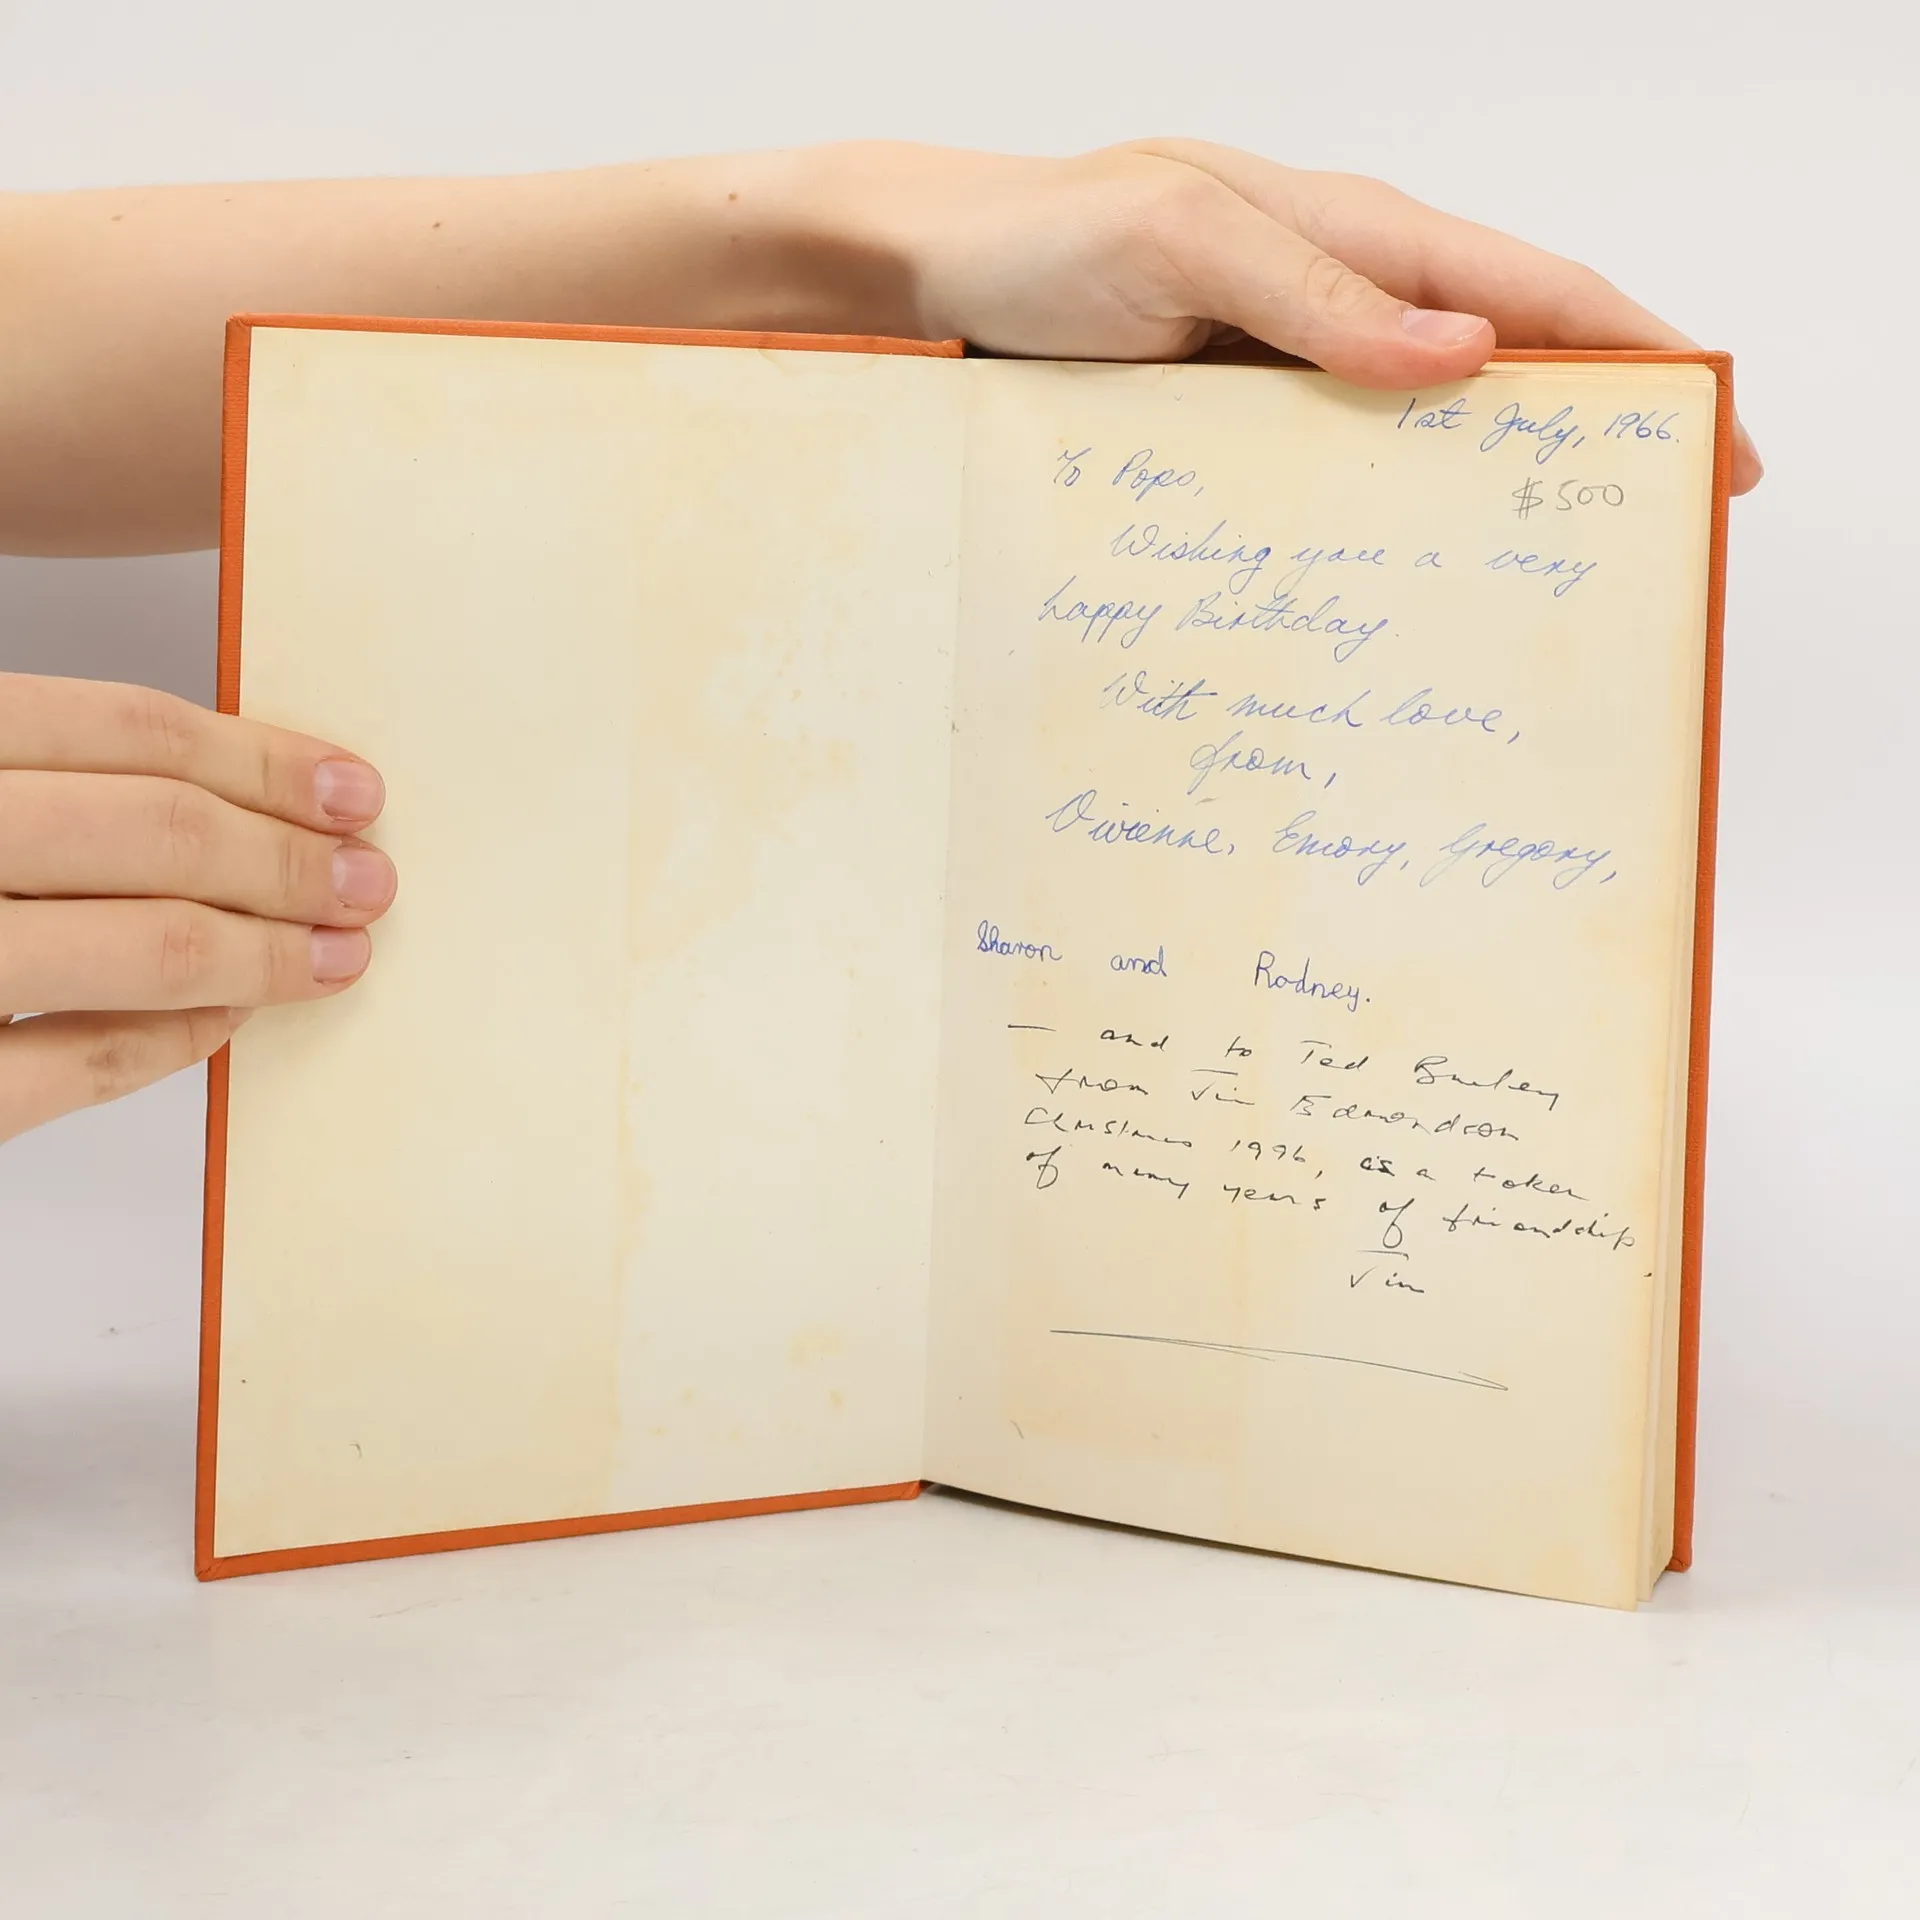 1st July, 1966.
To Pops,
$500
Wishing you a very
happy Birthday.
With much love,
from,
Vivienne, Emory, Gregory,
Sharon and Rodney.
— and to Ted
from Jim Edmondson
Christmas 1996, as a token
of many years of friendship.
Jim